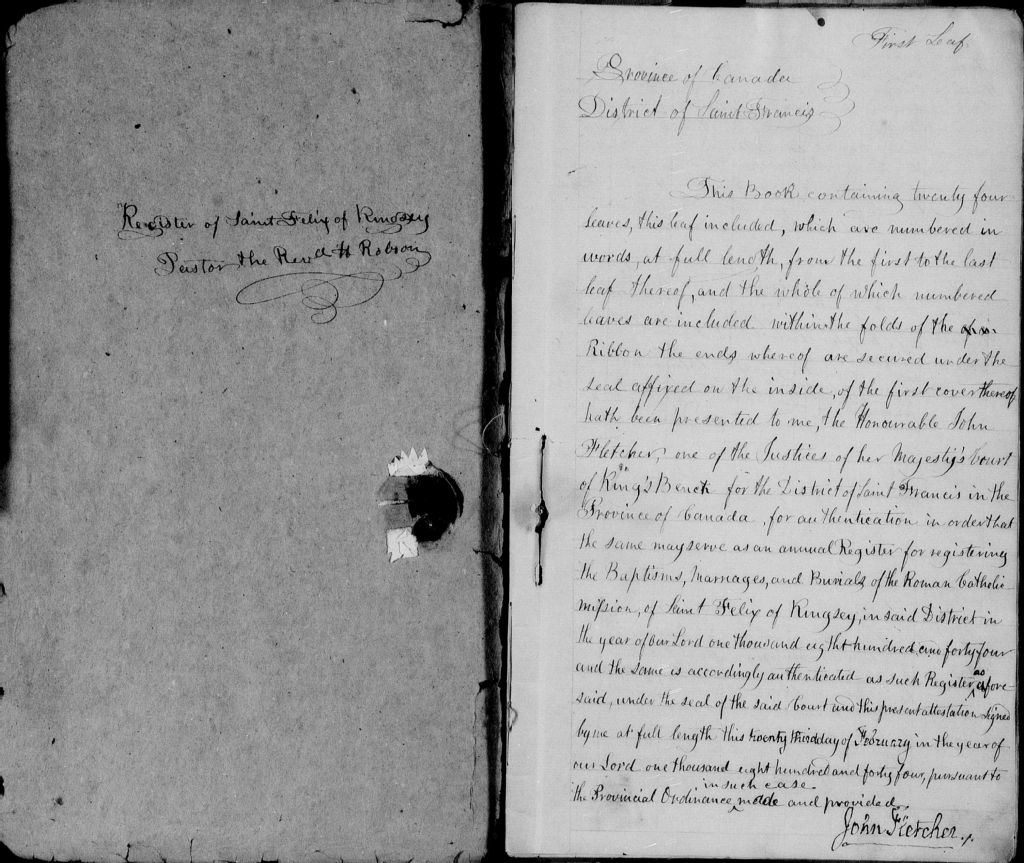 Register of Saint Felix of Kingsey
Pastor the Revd H Robson
First Leaf
Province of Canada
District of Saint Francis
This Book containing twenty four
leaves, this leaf included, which are numbered in
words, at full length, from the first to the last
leaf thereof, and the whole of which numbered
leaves are included within the folds of the
Ribbon the ends whereof are secured under the
seal affixed on the inside, of the first cover thereof
hath been presented to me, the Honourable John
Fletcher, one of the Justices of her Majesty's Court
of King's Bench for the District of Saint Francis in the
Province of Canada, for authentication in order that
the same may serve as an annual Register for registering
the Baptisms, Marriages, and Burials of the Roman Catholic
mission, of Saint Felix of Kingsey, in said District in
the year of our Lord one thousand eight hundred and forty four
and the same is accordingly authenticated as such Register, as afore-
said, under the seal of the said Court and this present attestation signed
by me at full length this twenty third day of February in the year of
our Lord one thousand eight hundred and forty four, pursuant to
the Provincial Ordinance in such case made and provided
John Fletcher.